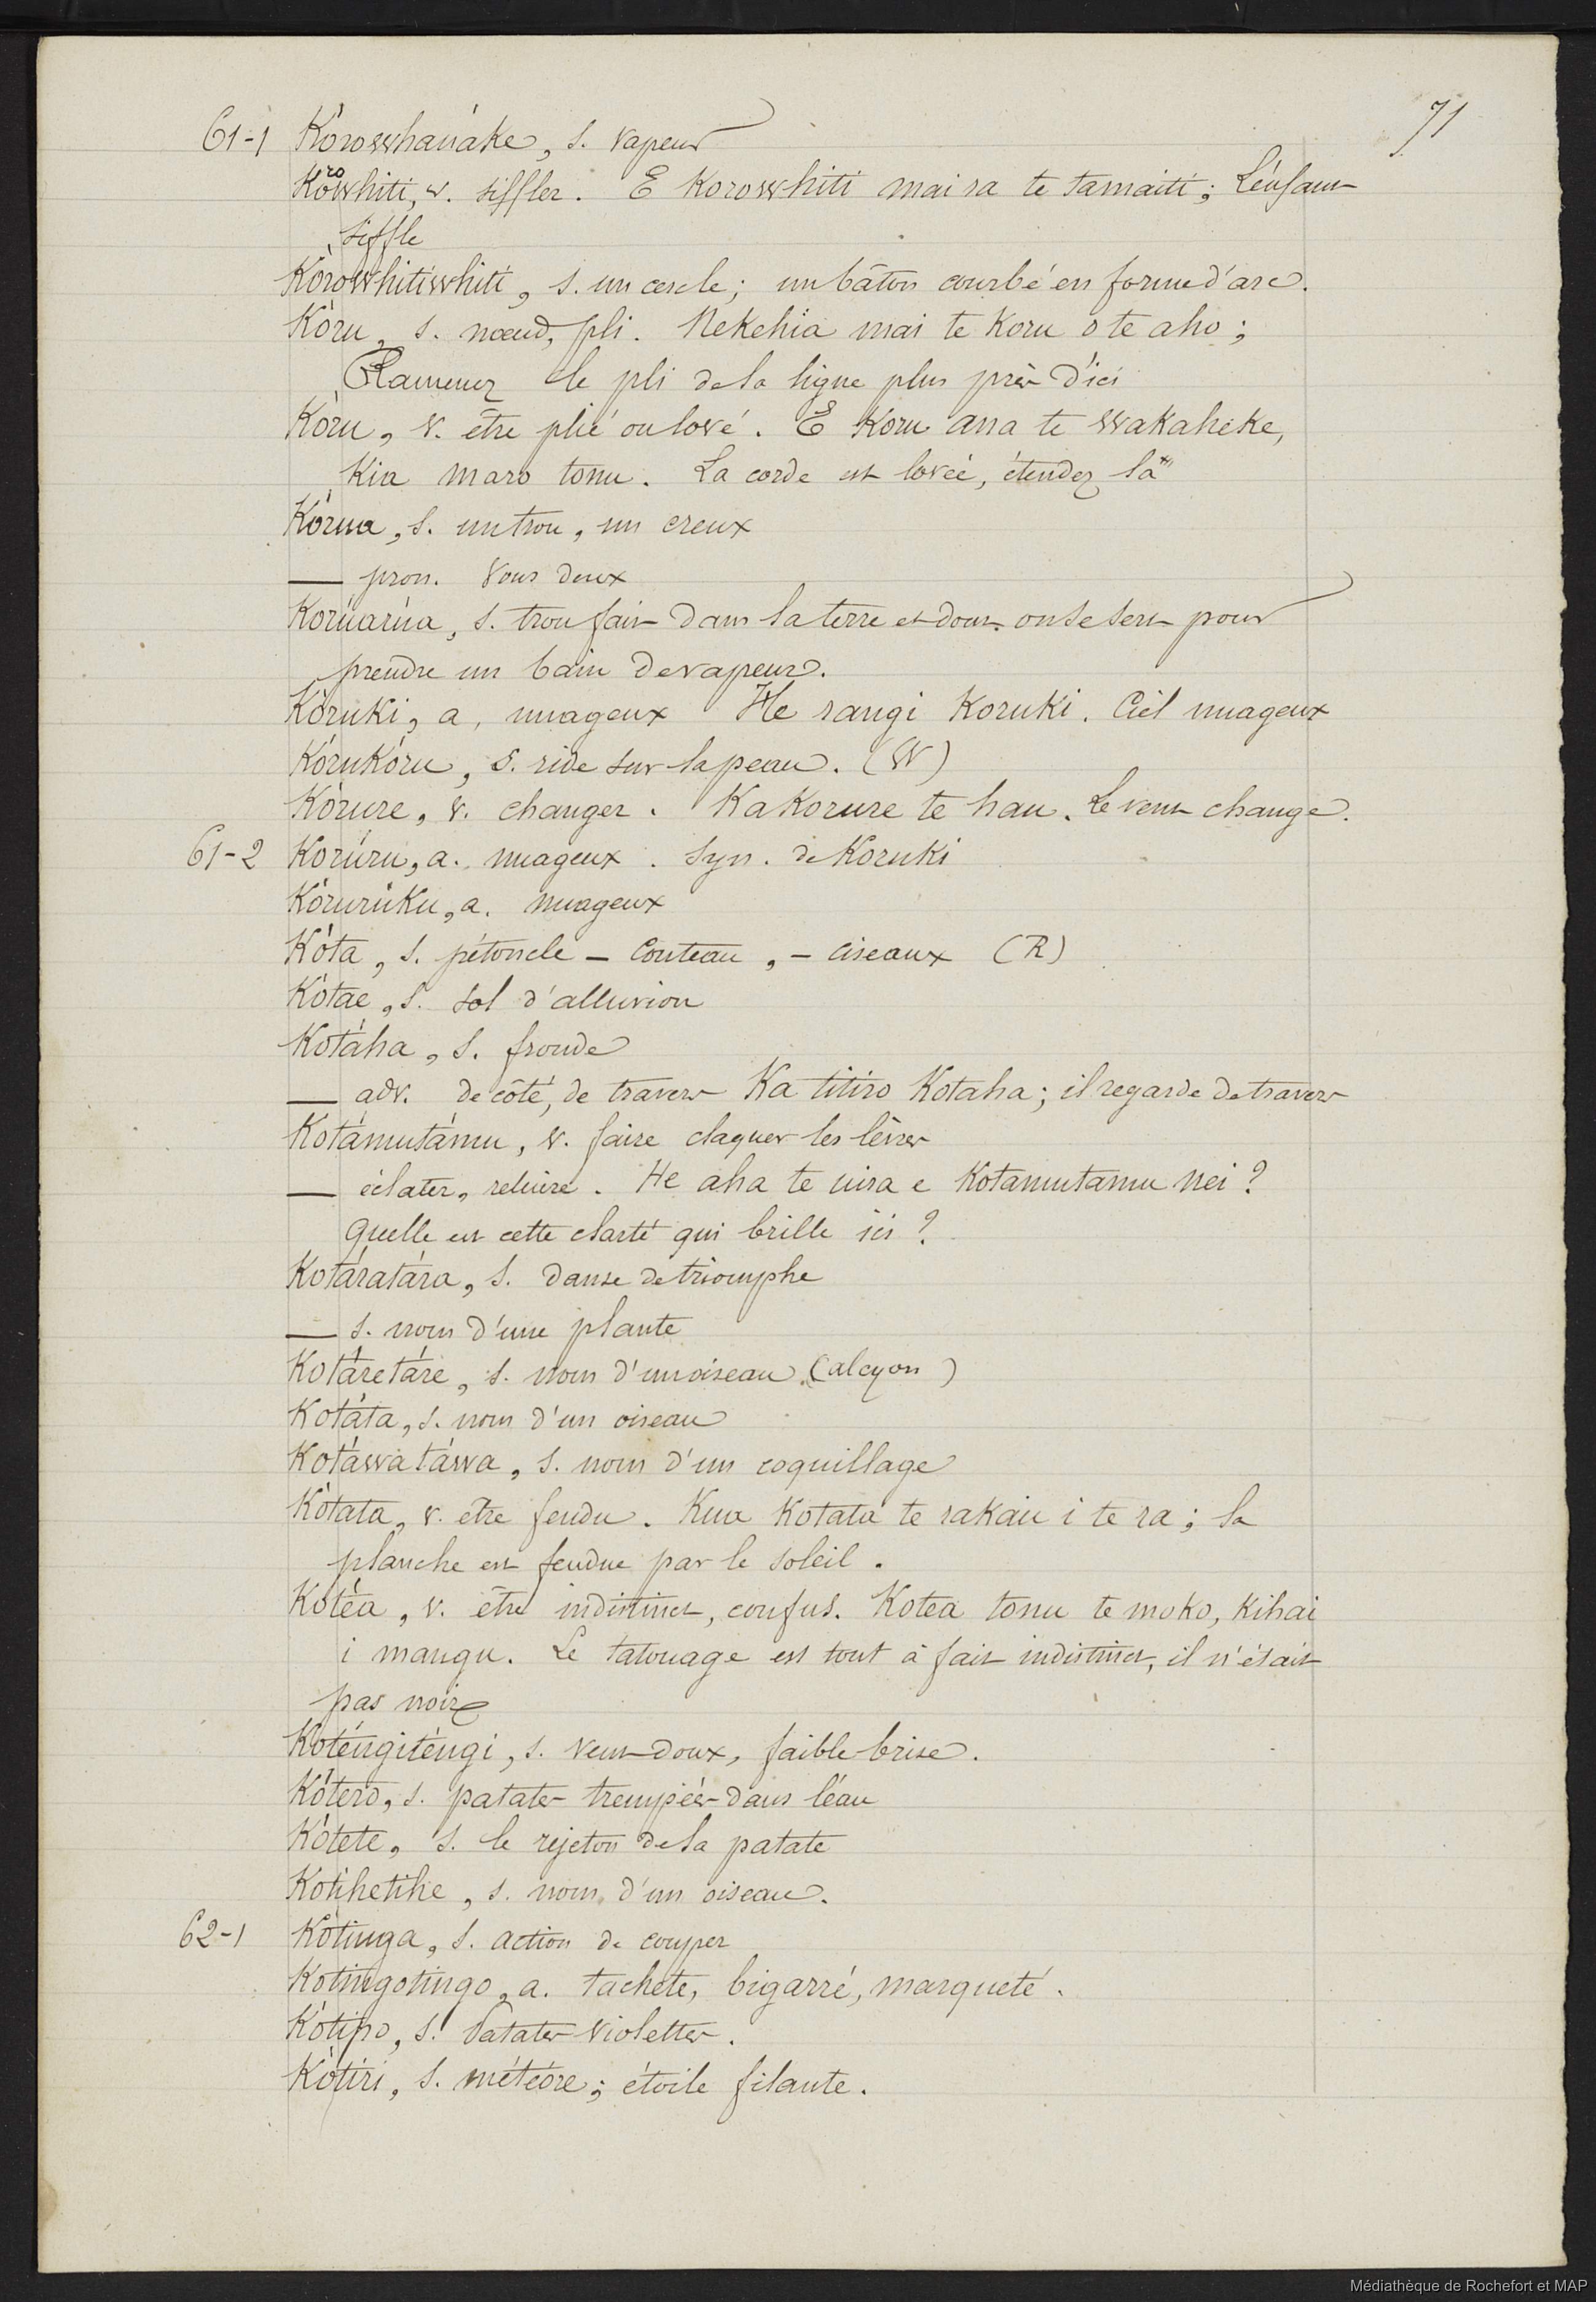 71
61-1 Kórowhanáke, s. vapeur
Kòrowhiti, v. siffler. E Korowhiti mai ra te tamaiti; L'enfant
siffle
Kòrowhitiwhiti, s. un cercle; un bâton courbé en forme d'arc.
Kòru, s. nœud, pli. Nekehia mai te Koru o te aho;
Ramenez le pli de la ligne plus près d'ici
Kòru, v. être plié ou lové. E Koru ana te wakaheke,
Kia maro tonu. La corde est lovée, étendez la
Kórua, s. un trou, un creux
— pron. Vous deux
Korúarúa, s. trou fait dans la terre et dont on se sert pour
prendre un bain de vapeur.
Kòruki, a, nuageux He rangi Koruki. Ciel nuageux
Kórukóru, s. ride sur la peau. (W)
Kòrure, v. changer. Ka Korure te hau. Le vent change.
61-2 Korúru, a. nuageux. Syn. de Koruki
Kòrurúku, a. nuageux
Kóta, s. pétoncle – Couteau, – ciseaux (R)
Kòtae, s. sol d'alluvion
Kotáha, s. fronde
— adv. de côté, de travers Ka titiro Kotaha; il regarde de travers
Kotámutámu, v. faire claquer les lèvres
— éclater, reluire. He aha te uira e Kotamutamu nei?
Quelle est cette clarté qui brille ici?
Kotáratára, s. danse de triomphe
— s. nom d'une plante
Kotáretáre, s. nom d'un oiseau (alcyon)
Kotáta, s. nom d'un oiseau
Kotáwatáwa, s. nom d'un coquillage
Kòtata, v. être fendu. Kua Kotata te rakau i te ra; la
planche est fendue par le soleil.
Kotéa, v. être indistinct, confus. Kotea tonu te moko, Kihai
i mangu. Le tatouage est tout à fait indistinct, il n'était
pas noir
Koténgiténgi, s. vent doux, faible brise.
Kótero, s. patates trempées dans l'eau
Kòtete, s. le rejeton de la patate
Kotihetihe, s. nom d'un oiseau.
62-1 Kòtinga, s. action de couper
Kotingotingo, a. tacheté, bigarré, marqueté.
Kòtipo, s. Patates violettes.
Kòtiri, s. météore; étoile filante.
Médiathèque de Rochefort et MAP